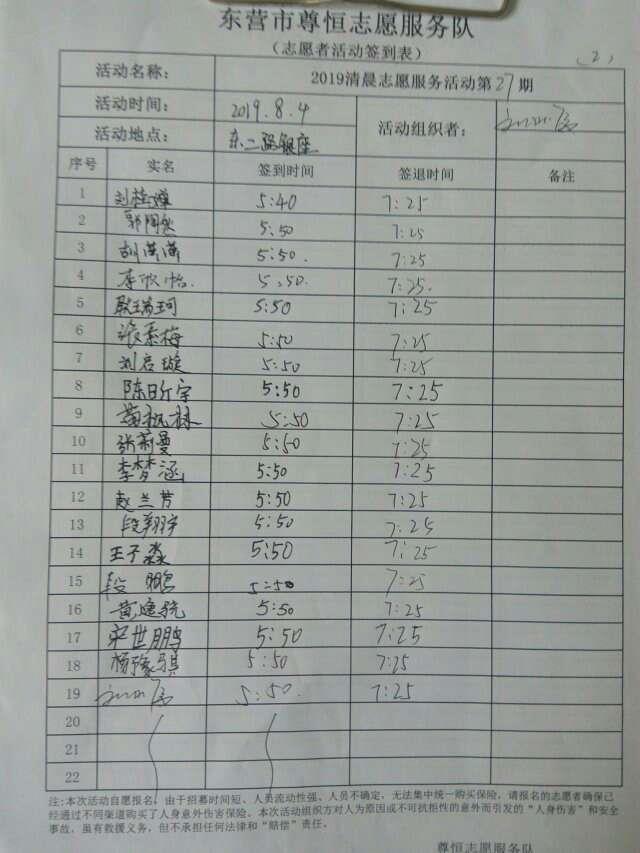 东营市尊恒志愿服务队
（志愿者活动签到表）
(2)
活动名称： 2019清晨志愿服务活动第27期
活动时间： 2019.8.4
活动地点： 东二路银座 活动组织者：
序号 实名 签到时间 签退时间 备注
1 刘桂婵 5:40 7:25
2 郭陶然 5:50 7:25
3 胡潇潇 5:50. 7:25
4 李欣怡 5:50. 7:25.
5 耿瑞珂 5:50 7:25
6 张素梅 5:50 7:25
7 刘启璇 5:50 7:25
8 陈昕宇 5:50 7:25
9 黄枫林 5:50 7:25
10 张莉曼 5:50 7:25
11 李梦涵 5:50 7:25
12 赵兰芳 5:50 7:25
13 段翔宇 5:50 7:25
14 王子淼 5:50 7:25
15 段鹏 5:50 7:25
16 5:50 7:25
17 宋世鹏 5:50 7:25
18 杨豫琪 5:50 7:25
19 5:50. 7:25
20
21
22
注:本次活动自愿报名，由于招募时间短、人员流动性强、人员不确定，无法集中统一购买保险，请报名的志愿者确保已
经通过不同渠道购买了人身意外伤害保险。本次活动组织方对人为原因或不可抗拒性的意外而引发的“人身伤害”和安全
事故，虽有救援义务，但不承担任何法律和“赔偿”责任。
尊恒志愿服务队